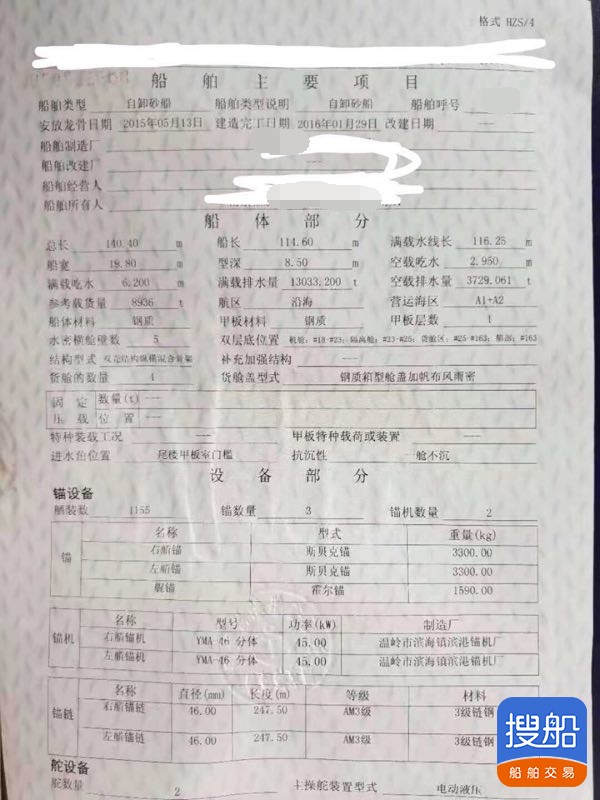 格式 HZS/4
船 舶 主 要 项 目
船舶类型 自卸砂船 船舶类型说明 自卸砂船 船舶呼号
安放龙骨日期 2015年05月13日 建造完工日期 2016年01月29日 改建日期 ---
船舶制造厂
船舶改建厂 ---
船舶经营人
船舶所有人
船 体 部 分
总长 140.40 m 船长 114.60 m 满载水线长 116.25 m
船宽 19.80 m 型深 8.50 m 空载吃水 2.950 m
满载吃水 6.200 m 满载排水量 13033.200 t 空载排水量 3729.061 t
参考载货量 8936 t 航区 沿海 营运海区 A1+A2
船体材料 钢质 甲板材料 钢质 甲板层数 1
水密横舱壁数 5 双层底位置 机舱：#18-#23；隔离舱：#23-#25；货舱区：#25-#163；艏部：#163
结构型式 双壳结构纵横混合骨架 补充加强结构 ---
货舱的数量 4 货舱盖型式 钢质箱型舱盖加帆布风雨密
固 定 数量(t) ---
压 载 位 置 ---
特种装载工况 --- 甲板特种载荷或装置 ---
进水角位置 尾楼甲板室门槛 抗沉性 一舱不沉
设 备 部 分
锚设备
舾装数 1155 锚数量 3 锚机数量 2
名称 型式 重量(kg)
锚 右艏锚 斯贝克锚 3300.00
左艏锚 斯贝克锚 3300.00
艉锚 霍尔锚 1590.00
名称 型号 功率(kW) 制造厂
锚机 右艏锚机 YMA-46 分体 45.00 温岭市滨海镇滨港锚机厂
左艏锚机 YMA-46 分体 45.00 温岭市滨海镇滨港锚机厂
名称 直径(mm) 长度(m) 等级 材料
锚链 右艏锚链 46.00 247.50 AM3级 3级链钢
左艏锚链 46.00 247.50 AM3级 3级链钢
舵设备
舵数量 2 主操舵装置型式 电动液压
搜船
船舶交易